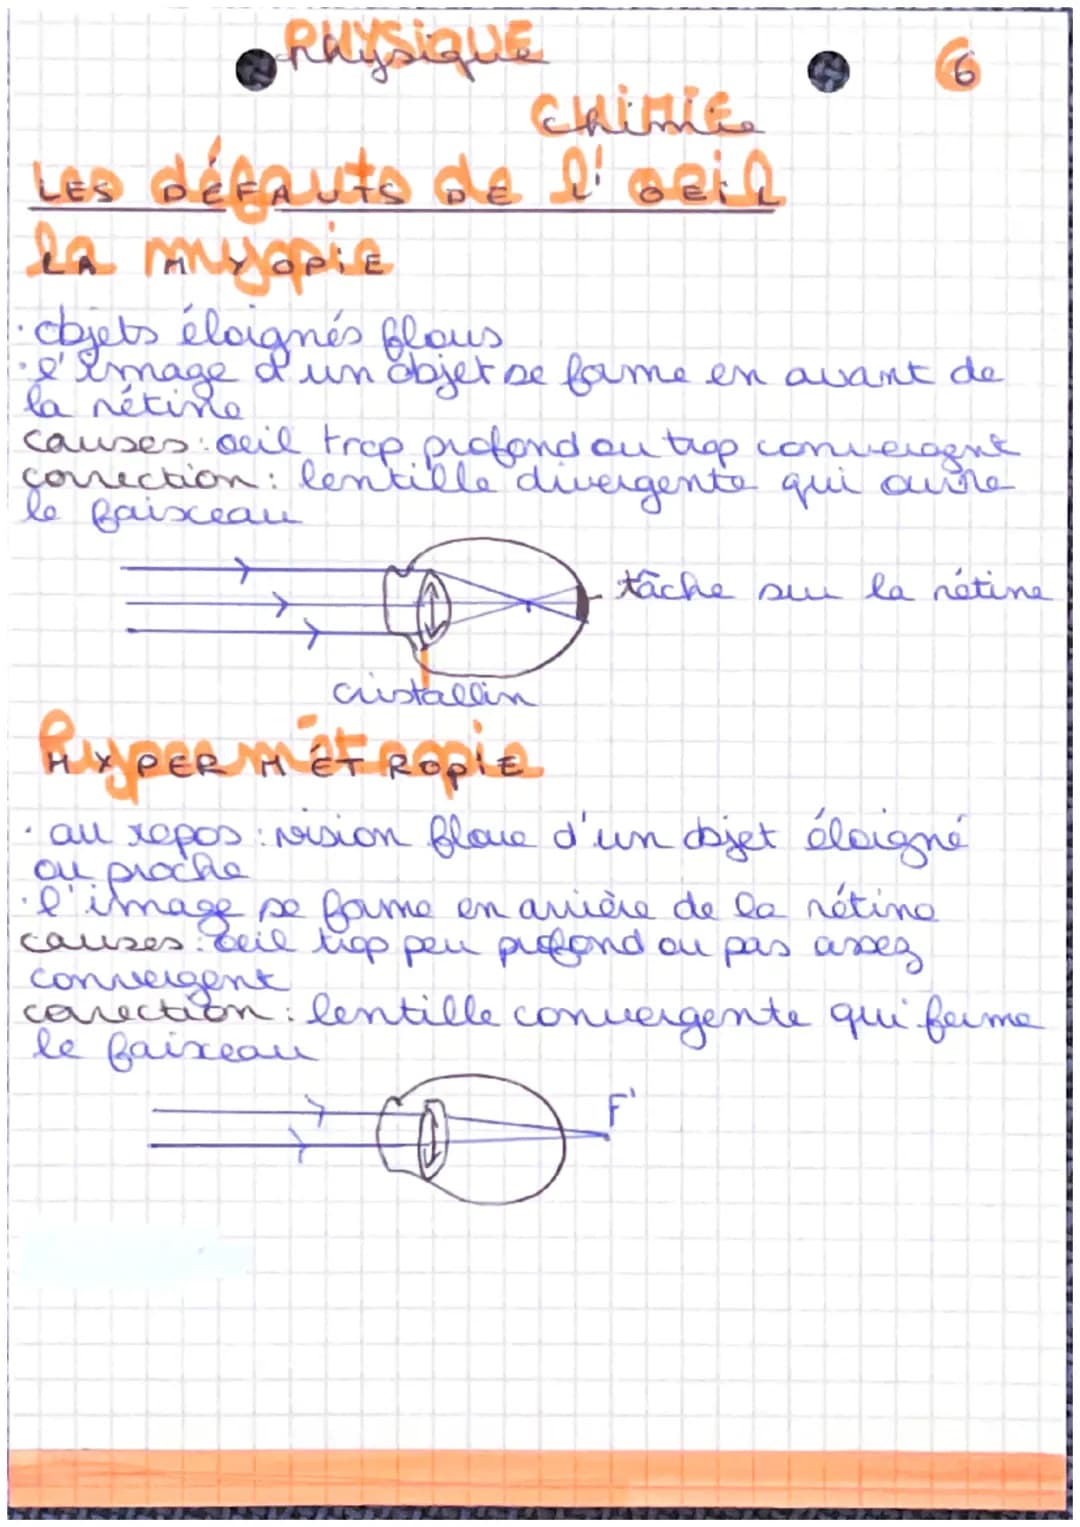 PHYSIQUE
Physique
6
CHIMIE
chimie
LES DÉFAUTS DE L'OEIL
LA MYOPIE
· objets éloignés flous
· l'image d'un objet se forme en avant de
la rétine
causes : oeil trop profond ou trop convergent
correction : lentille divergente qui ouvre
le faisceau
tâche sur la rétine
cristallin
HYPERMÉTROPIE
· au repos : vision floue d'un objet éloigné
ou proche
· l'image se forme en arrière de la rétine
causes : oeil trop peu profond ou pas assez
convergent
correction : lentille convergente qui ferme
le faisceau
F'